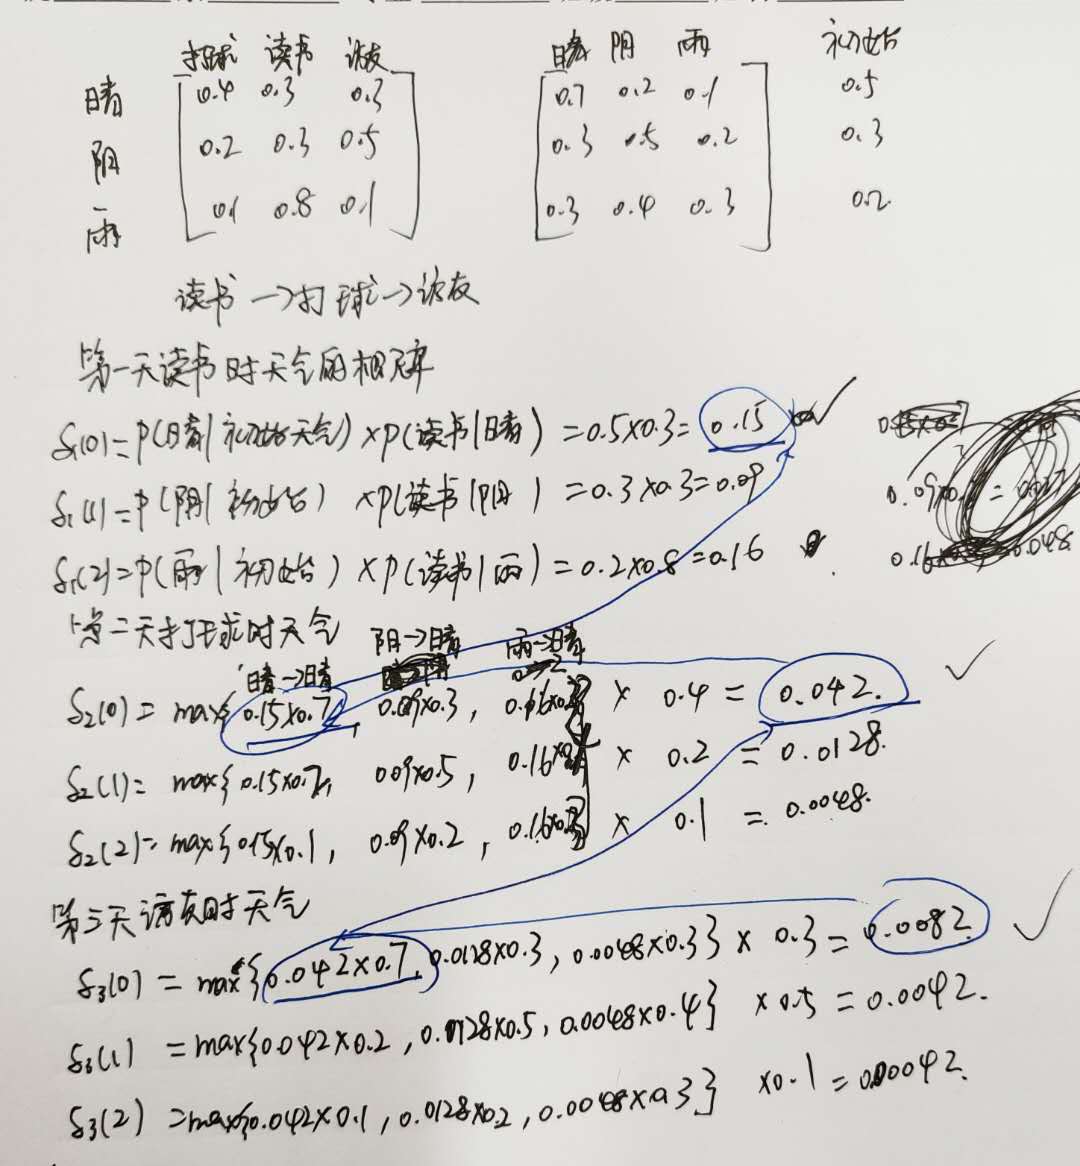 打球 读书 访友 晴 阴 雨 初始
晴 0.4 0.3 0.3 0.7 0.2 0.1 0.5
阴 0.2 0.3 0.5 0.3 0.5 0.2 0.3
雨 0.1 0.8 0.1 0.3 0.4 0.3 0.2
读书→打球→访友
第一天读书时天气的概率
δ₁(0)=P(晴|初始天气)×P(读书|晴)=0.5×0.3=0.15
δ₁(1)=P(阴|初始)×P(读书|阴)=0.3×0.3=0.09
δ₁(2)=P(雨|初始)×P(读书|雨)=0.2×0.8=0.16
0.048
第二天打球时天气
晴→晴 阴→晴 雨→晴
δ₂(0)=max{0.15×0.7, 0.09×0.3, 0.16×0.3}×0.4=0.042.
δ₂(1)=max{0.15×0.2, 0.09×0.5, 0.16× }×0.2=0.0128.
δ₂(2)=max{0.15×0.1, 0.09×0.2, 0.16×0.3}×0.1=0.0048.
第三天访友时天气
δ₃(0)=max{0.042×0.7, 0.0128×0.3, 0.0048×0.3}×0.3=0.0082
δ₃(1)=max{0.042×0.2, 0.0128×0.5, 0.0048×0.4}×0.5=0.0042.
δ₃(2)=max{0.042×0.1, 0.0128×0.2, 0.0048×0.3}×0.1=0.00042.